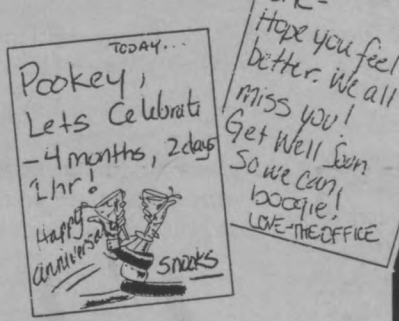 TODAY...
Pookey,
Lets Celebrate
-4 months, 2days
1hr!
Happy
anniversary
Snooks
Hope you feel
better. We all
miss you!
Get Well Soon
So we can
boogie!
LOVE-THE OFFICE